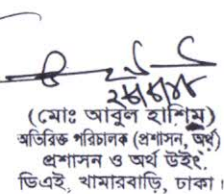 (মোঃ আবুল হাশিম)
অতিরিক্ত পরিচালক (প্রশাসন, অর্থ)
প্রশাসন ও অর্থ উইং,
ডিএই, খামারবাড়ি, ঢাকা